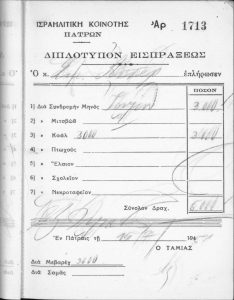 ΙΣΡΑΗΛΙΤΙΚΗ ΚΟΙΝΟΤΗΣ
ΠΑΤΡΩΝ
Ἀρ 1713
ΔΙΠΛΟΤΥΠΟΝ ΕΙΣΠΡΑΞΕΩΣ
Ὁ κ. ἐπλήρωσεν
ΠΟΣΟΝ
1) Διὰ Συνδρομὴν Μηνὸς 3.000
2) » Μιτσβῶθ
3) » Κασὲλ 3000 3.000
4) » Πτωχοὺς
5) » Ἔλαιον
6) » Σχολεῖον
7) » Νεκροταφεῖον
Σύνολον Δραχ. 6.000
Ἐν Πάτραις τῇ 194
Ο ΤΑΜΙΑΣ
Διὰ Μεβαρὲχ 3000
Διὰ Σαμᾶς